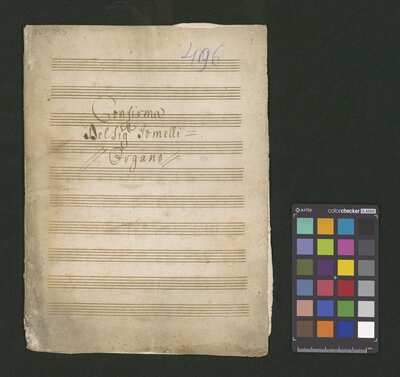 496
Confirma
Del Sig.r Jomelli =
Organo
x-rite
colorchecker CLASSIC